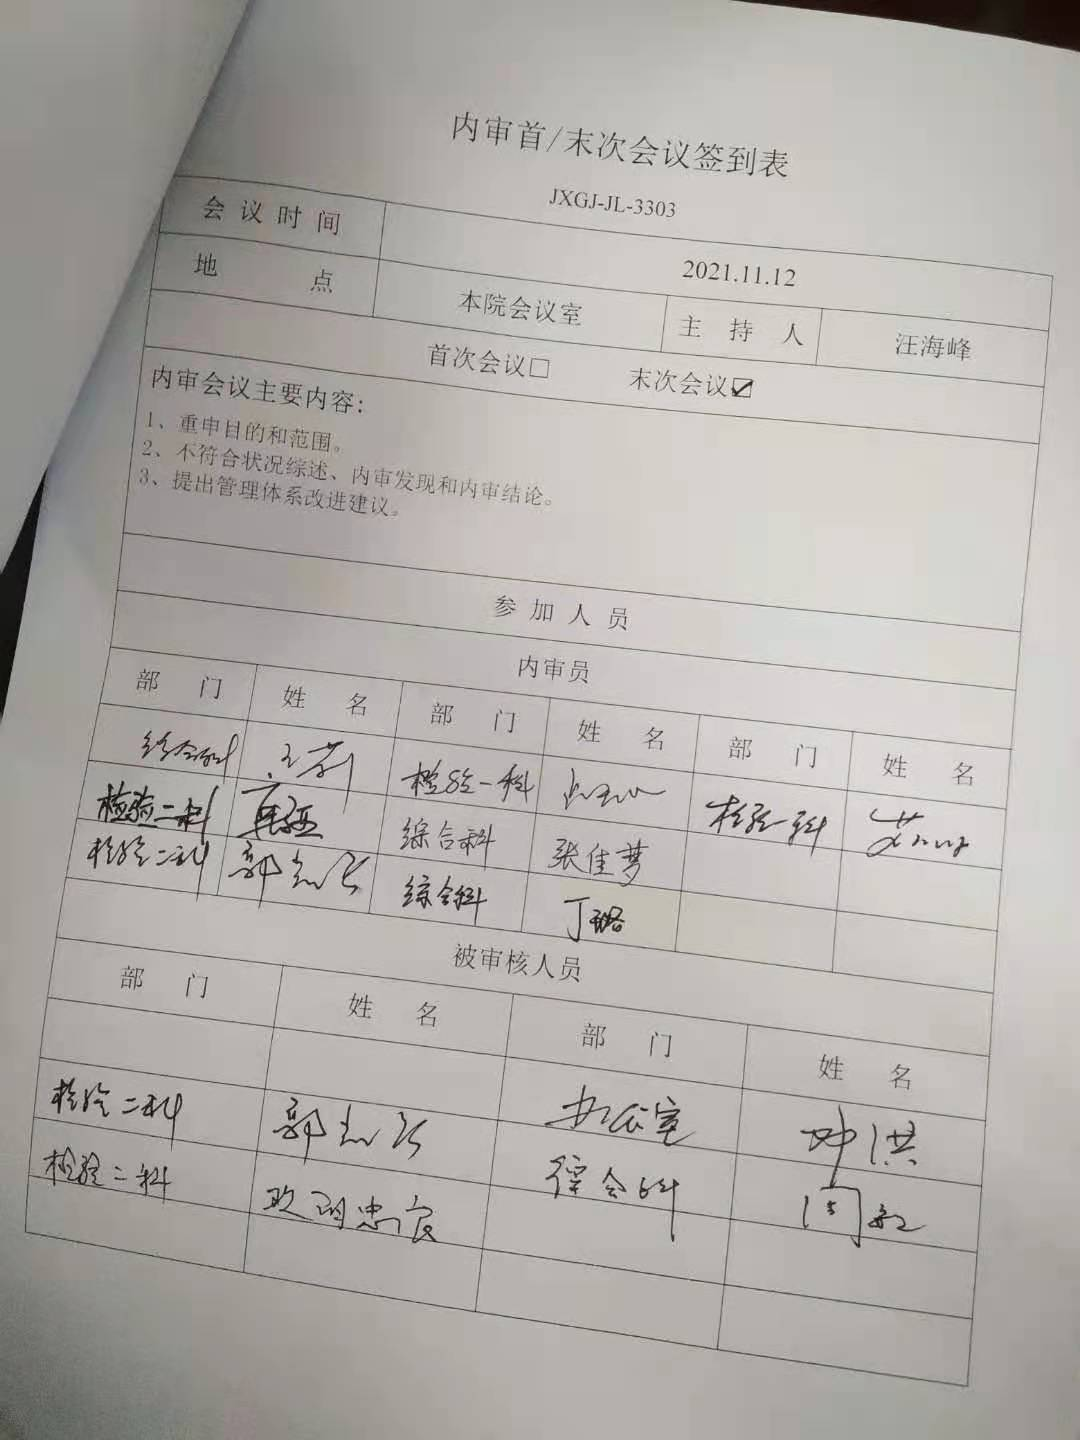 内审首/末次会议签到表
JXGJ-JL-3303
会议时间 2021.11.12
地点 本院会议室 主持人 汪海峰
首次会议□ 末次会议☑
内审会议主要内容：
1、重申目的和范围。
2、不符合状况综述、内审发现和内审结论。
3、提出管理体系改进建议。
参加人员
内审员
部门 姓名 部门 姓名 部门 姓名
综合科 检验一科 检验一科
检验二科 综合科 张佳梦
检验二科 郭 综合科 丁璐
被审核人员
部门 姓名 部门 姓名
检验二科 郭 办公室 洪
检验二科 欧阳忠良 综合科 周